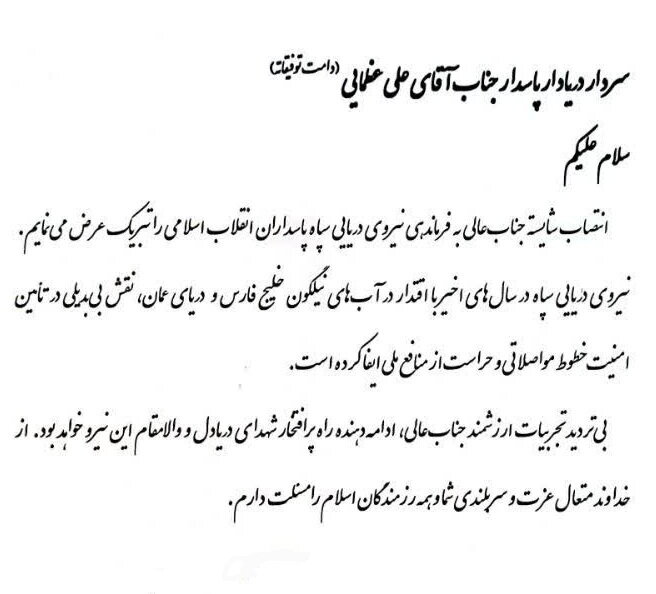 سردار دریادار پاسدار جناب آقای علی عظمایی (دامت توفیقاته)
سلام علیکم
انتصاب شایسته جناب‌عالی به فرماندهی نیروی دریایی سپاه پاسداران انقلاب اسلامی را تبریک عرض می‌نمایم.
نیروی دریایی سپاه در سال‌های اخیر با اقتدار در آب‌های نیلگون خلیج فارس و دریای عمان، نقش بی‌بدیلی در تأمین
امنیت خطوط مواصلاتی و حراست از منافع ملی ایفا کرده است.
بی‌تردید تجربیات ارزشمند جناب‌عالی، ادامه‌دهنده راه پرافتخار شهدای دریادل و والامقام این نیرو خواهد بود. از
خداوند متعال عزت و سربلندی شما و همه رزمندگان اسلام را مسئلت دارم.